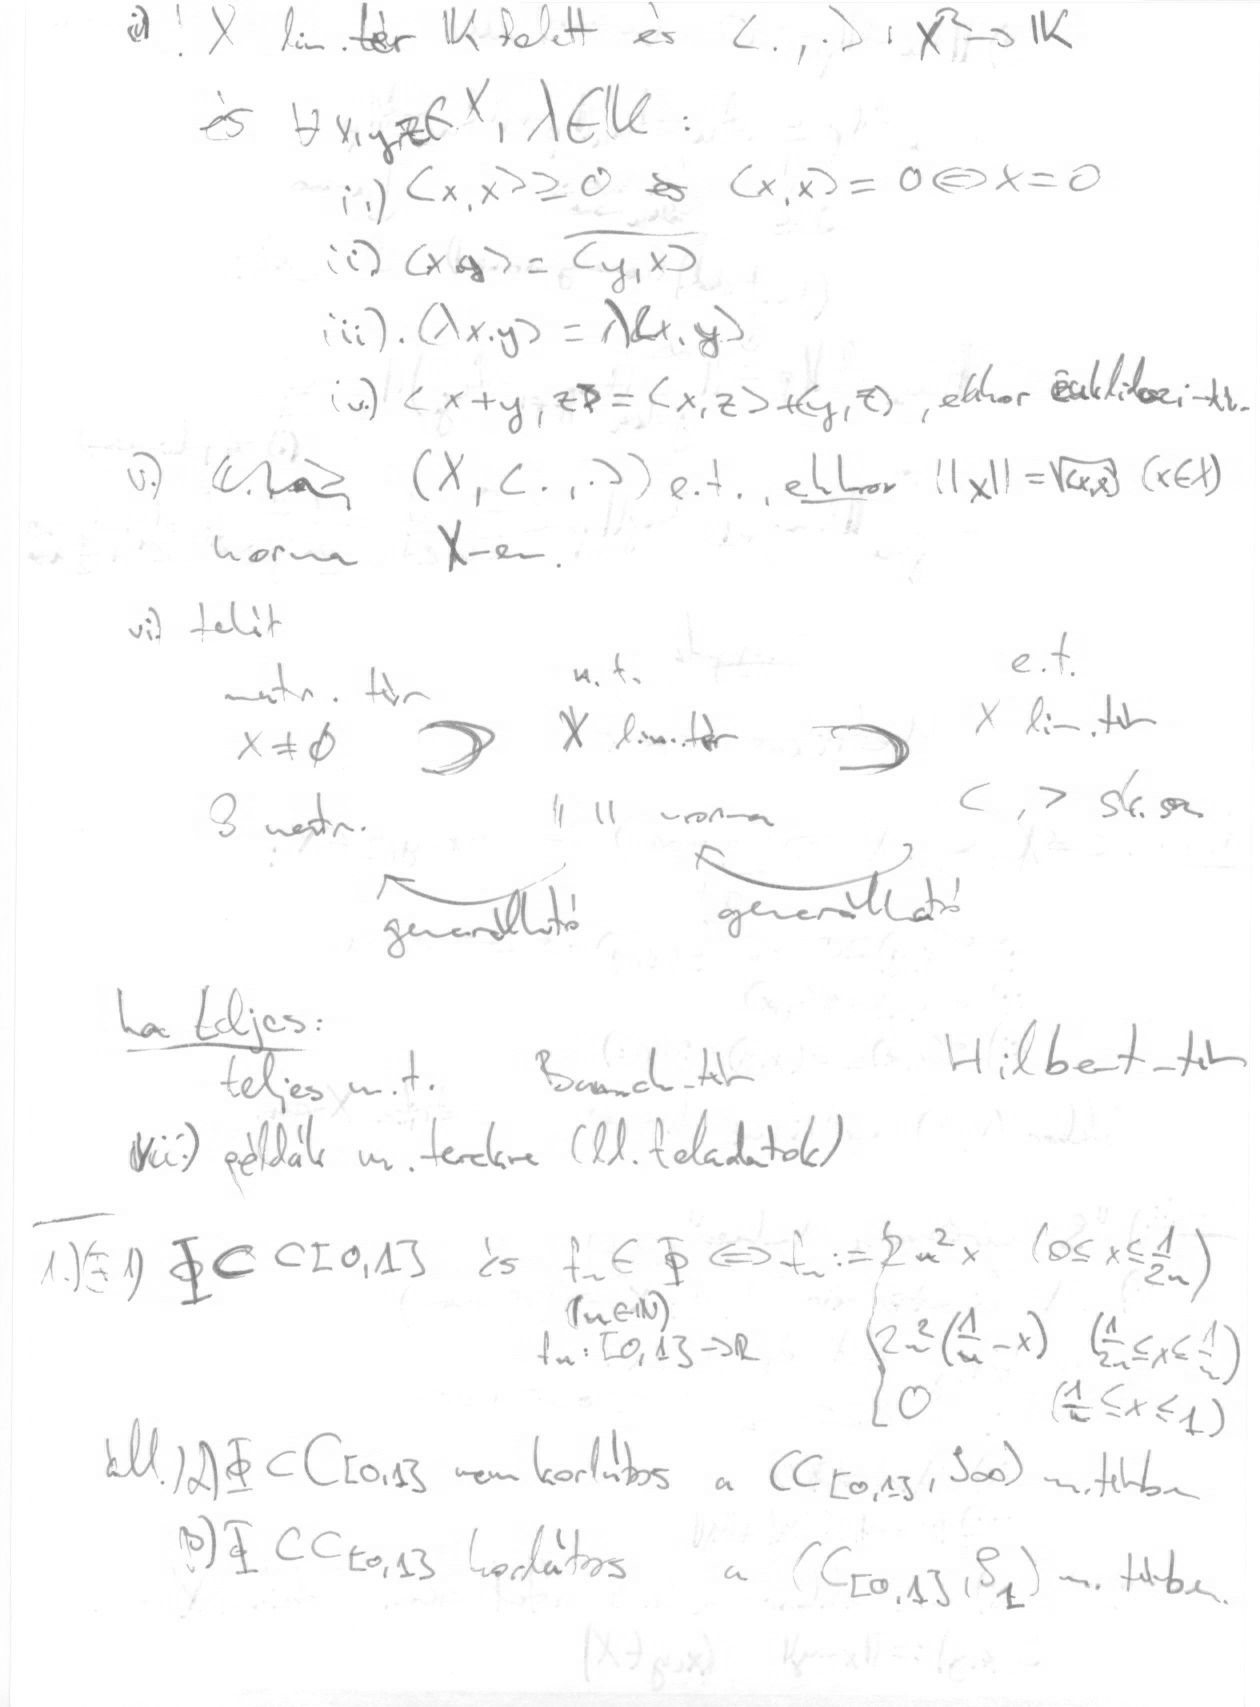 ! X lin. tér 𝕂 felett és <.,.> : X² → 𝕂
és ∀ x,y,z ∈ X, λ ∈ 𝕂 :
i.) <x,x> ≥ 0 és <x,x> = 0 ⇔ x = 0
ii) <x,y> = \overline{<y,x>}
iii). <λx,y> = λ<x,y>
iv.) <x+y, z> = <x,z> + <y,z>, ekkor euklideszi-tér.
v.) (X, <.,.>) e.t., ekkor ||x|| = √<x,x> (x∈X)
norma X-en.
vi) tehát
metr. tér n.t. e.t.
X ≠ ∅ ⊃ X lin. tér ⊃ X lin. tér
ϱ metr. || || norma < , > sk. sz
generálható generálható
ha teljes:
teljes m.t. Banach-tér Hilbert-tér
vii) példák m. terekre (ld. feladatok)
1.) 1) Φ ⊂ C[0,1] és fn ∈ Φ ⇔ fn := { 2n²x (0 ≤ x ≤ 1/2n)
(n∈ℕ)
fn : [0,1] → R 2n²(1/n − x) (1/2n ≤ x ≤ 1/n)
0 (1/n ≤ x ≤ 1)
áll.) Φ ⊂ C[0,1] nem korlátos a (C[0,1], ϱ∞) m. térben
Φ ⊂ C[0,1] korlátos a (C[0,1], ϱ1) m. térben.